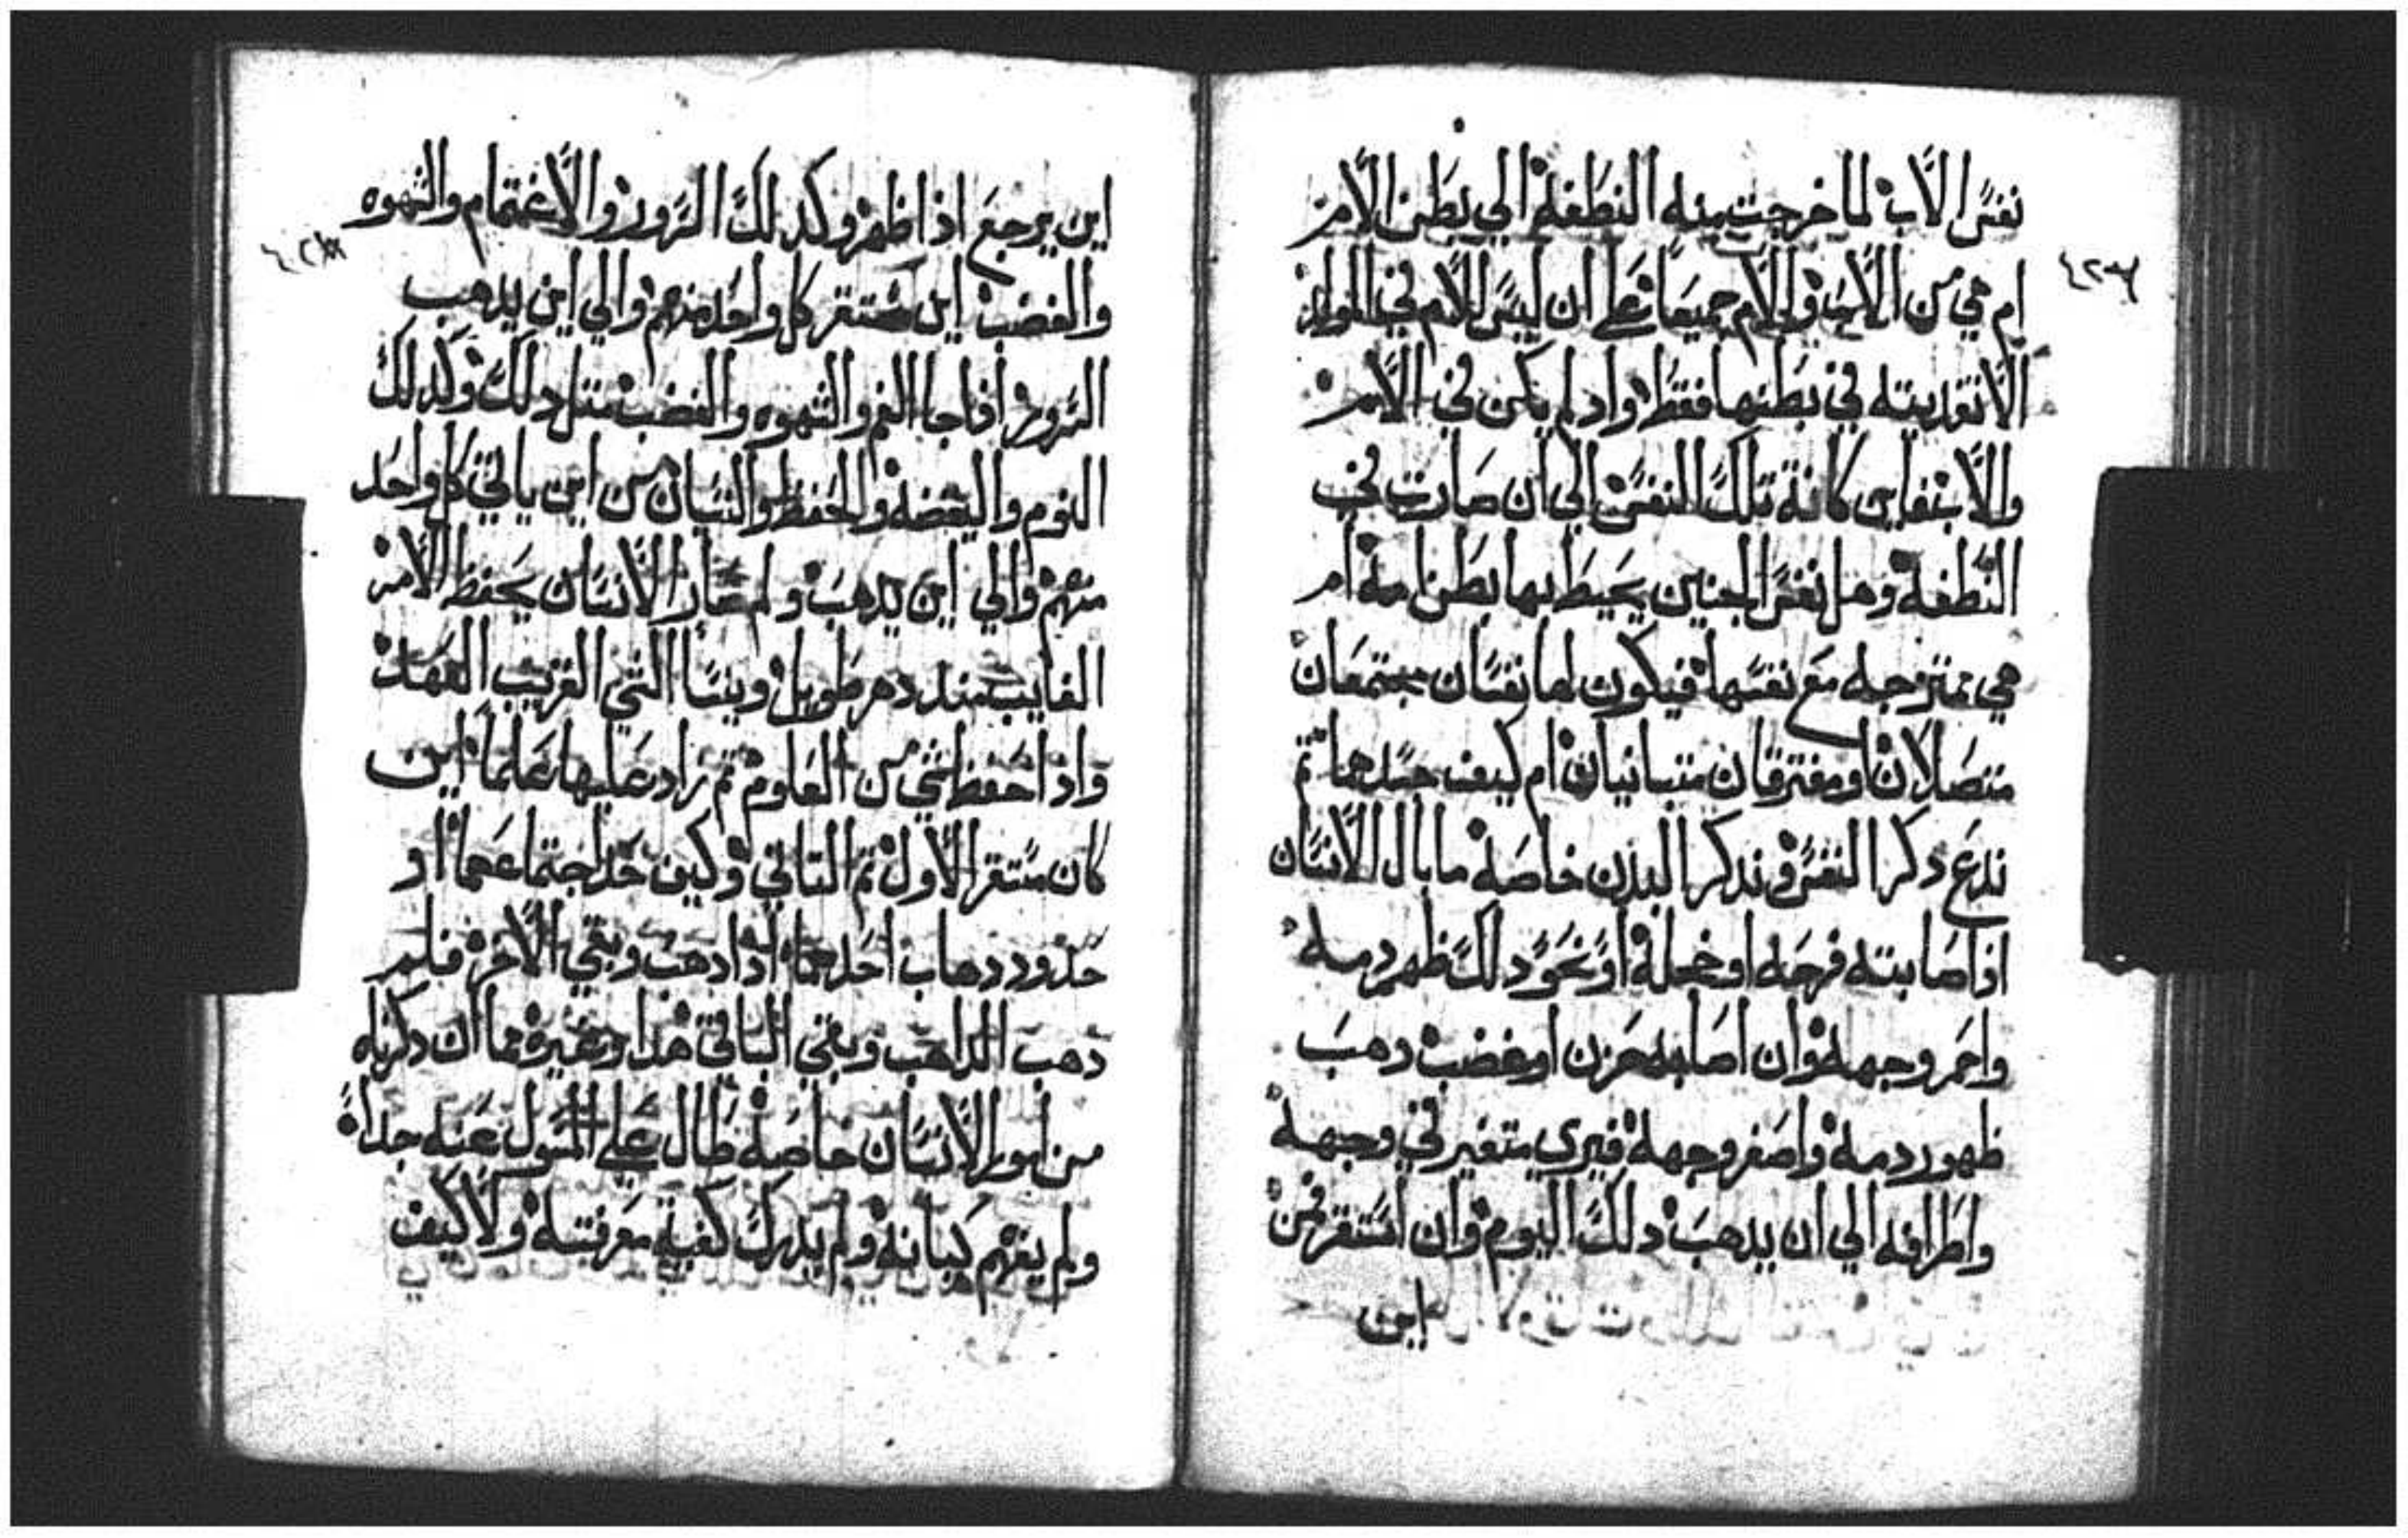 نفس الاب لما خرجت منه النطفه الي بطن الامر
ام هي من الاب والام جميعا علي ان ليس للام في المولد
الا تقديته في بطنها فقط واد لم يكن في الامر
والاب فاين كانة تلك النفس الي ان صارت في
النطفه وهل نفس الجنين يحيط بها بطن امه ام
هي ممتزوجه مع نفسها فيكون لها نفسان مجتمعان
متصلان او مفترقان متبانيان ام كيف حدهما تم
ندع دكر النفس وندكر البدن خاصه ما بال الانسان
اذا صابته فرحه او خجله او نحو دلك ظهر دمه
واحمر وجهه وان اصابه حزن او غضب دهب
ظهور دمه واصفر وجهه فيري متغير في وجهه
واطرافه الي ان يدهب دلك اليوم وان استقر فمن
اين
٤٢٧
اين يرجع اذا ظهر وكدلك السرور والاغتمام والشهوه
والغضب اين مستقر كل واحد منهم والي اين يدهب
السرور اذا جا الغم والشهوه والغضب متل دلك وكدلك
النوم واليقضه والحفظ والنسيان من اين ياتي كل واحد
منهم والي اين يدهب ولم صار الانسان يحفظ الامر
الغايب مند دهر طويل وينسا الشي القريب العهد
واذا حفظ شي من العلوم تم زاد عليها علما اين
كان مستقر الاول تم التاني وكيف حد اجتماعهما او
حدود دهاب احدهما ادا دهب وبقي الاخر فلم
دهب الداهب وبقي الباقي هدا وغيره مما ان دكرناه
من امور الانسان خاصه طال علي المسول عنه جداً
ولم يفهم كيانه ولم يدرك كفية معرفته ولا كيف